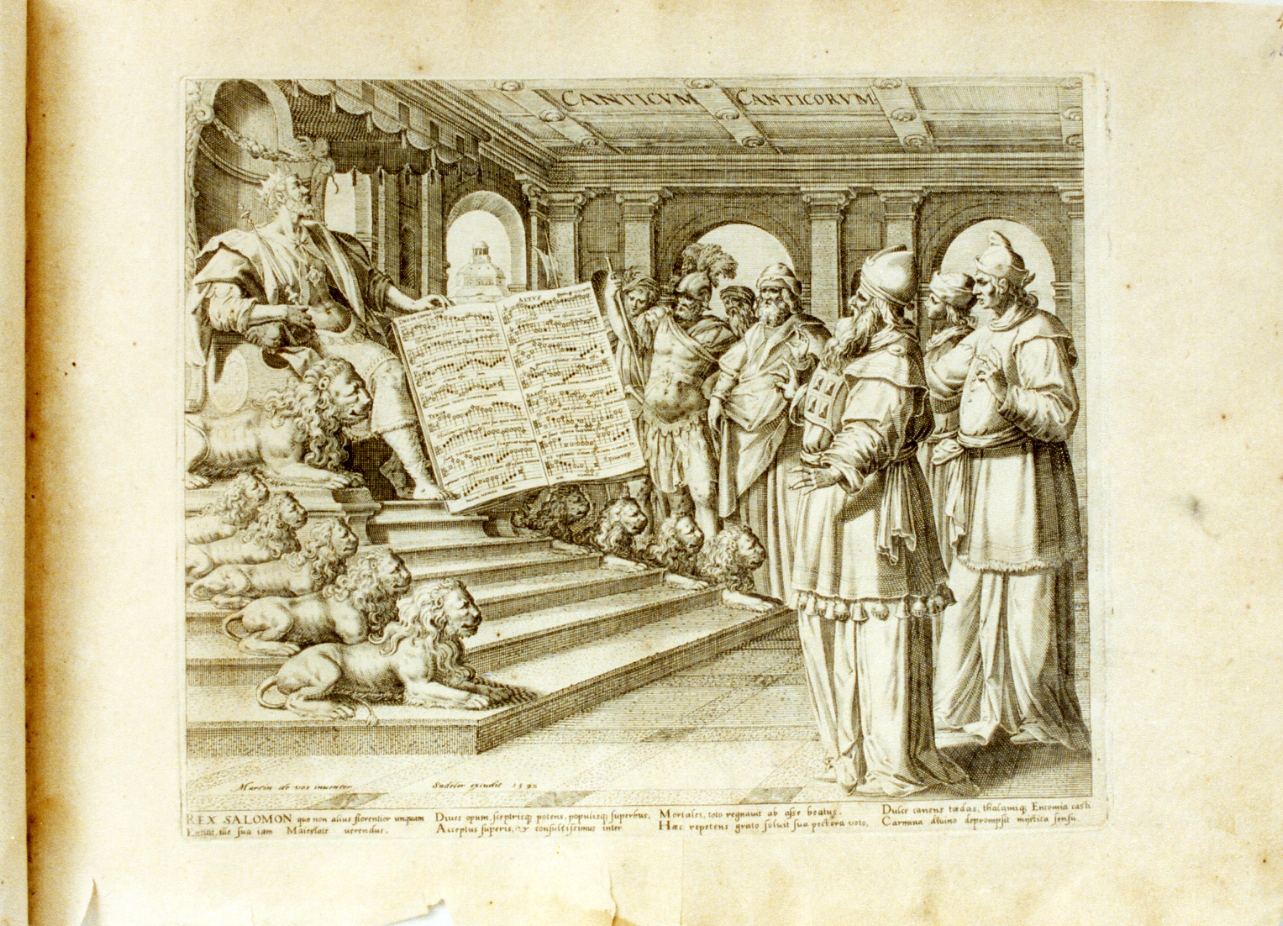 CANTICVM CANTICORVM
ALTVS
Martin de vos inuenter
Sadeler excudit
REX SALOMON quo non alius florentior unquam
Extitit, iste sua iam Maiestate verendus.
Diues opum, sceptrisq; potens, populisq; superbus,
Acceptus superis, & consultissimus inter
Mortales, toto regnauit ab asse beatus.
Hæc repetens grato soluit sua pectora voto,
Dulce canens tædas, thalamiq; Encomia casti
Carmina diuino deprompsit mystica sensu.